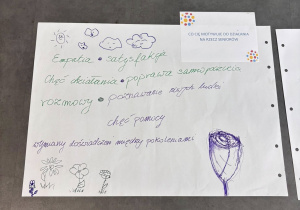 CO CIĘ MOTYWUJE DO DZIAŁANIA
NA RZECZ SENIORÓW
Empatia • satysfakcja
Chęć działania • poprawa samopoczucia
rozmowy • poznawanie nowych ludzi
chęć pomocy
wymiany doświadczeń między pokoleniami